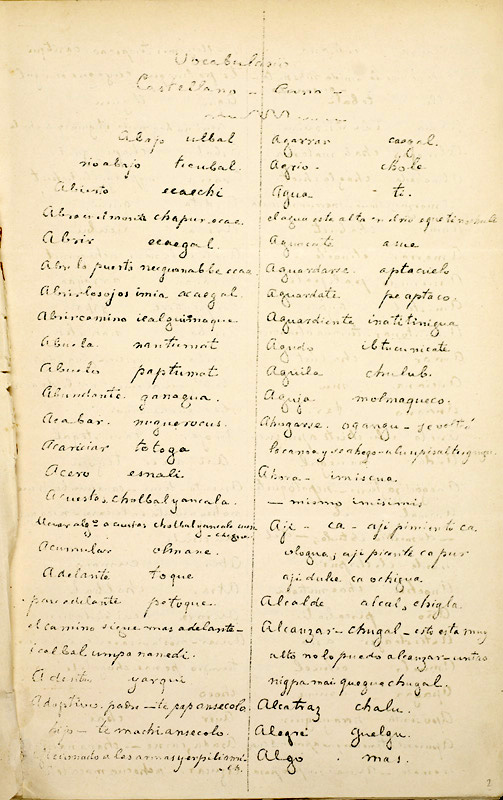 Vocabulario
Castellano - Cuna -
Abajo urbal
rio abajo ticubal.
Abierto ecaechi
chapur. ecae.
Abrir ecaegal.
Abrir los ojos imia acaegal.
Abrir camino icalguimaque.
Abuela nantumat
Abuelo paptumat.
Abundante ganagua.
Acabar. neguerocus.
Acariciar totoga
Acero esnali.
Acuestas. cholbal yancala.
Acumular olmane.
Adelante toque
para adelante petoque.
el camino sigue mas adelante -
icalbal umpo nanedi.
Adentro yarqui
Adoptivo. padre - te pap ansecolo.
hijo - te machi ansecolo.
Agarrar caegal.
Agrio - chole
Agua - ti.
el agua esta alta
Aguacate asue
Aguardarse. aptacuelo
Aguardate peaptaco.
Aguardiente inatitinigua
Agudo ibtucunicate
Aguila chulub.
Aguja molmaqueco.
Ahogarse. ogangu - se voltió
Ahora - imiscua.
- mismo imisimis
Aji - ca - aji pimiento ca.
ologua; aji picante ca pur
aji dulce ca ochigua.
Alcalde alcal, chigla.
Alcanzar - chugal - esto esta muy
alto no lo puedo alcanzar - untro
nigpamai quegue chugal.
Alcatraz chalu.
Alegre guelgu.
Algo . mas.
2